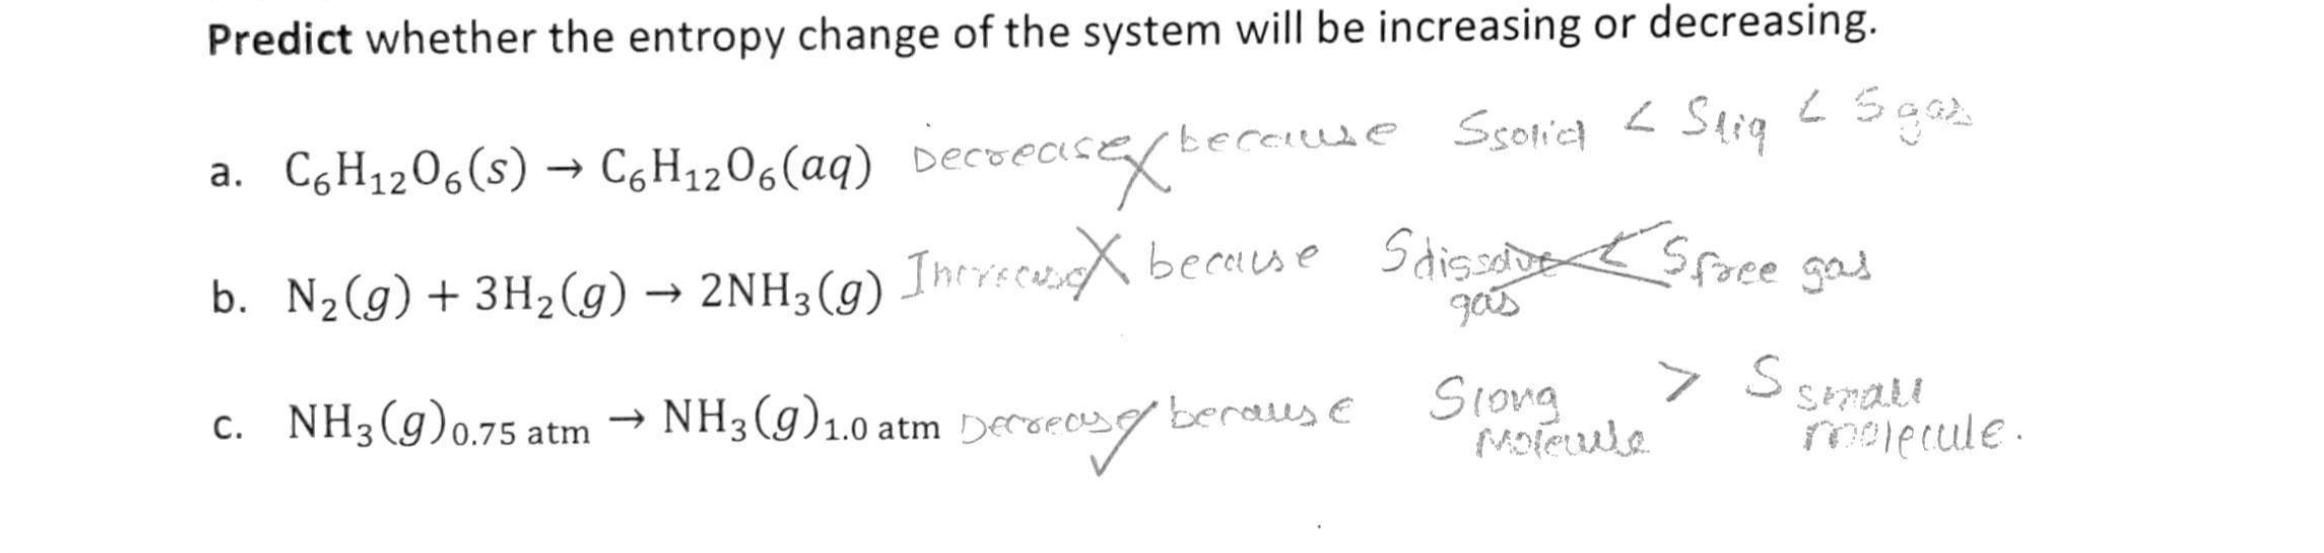 Predict whether the entropy change of the system will be increasing or decreasing.
a. C₆H₁₂O₆(s) → C₆H₁₂O₆(aq) Decrease because Ssolid < Sliq < Sgas
b. N₂(g) + 3H₂(g) → 2NH₃(g) Increase because Sdissolve gas < Sfree gas
c. NH₃(g)₀.₇₅ atm → NH₃(g)₁.₀ atm Decrease because Slong Molecule > Ssmall molecule.